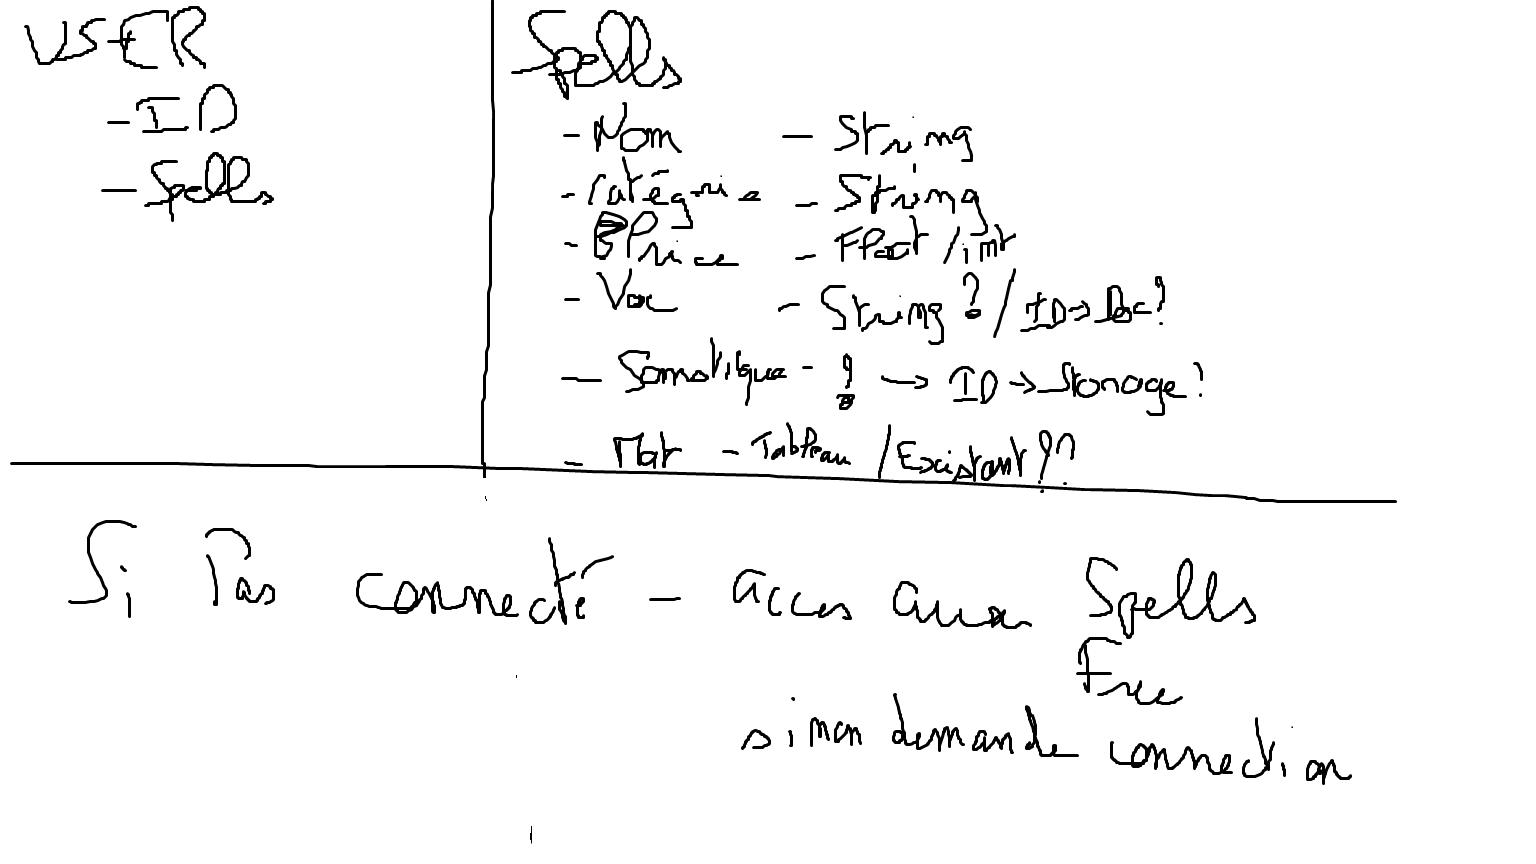 USER
- ID
- Spells
Spells
- Nom - String
- Catégorie - String
- Price - Float / int
- Voc - String ? / ID → Doc ?
- Somatique - ? → ID → Storage ?
- Mat - Tableau / Existant ??
Si Pas connecté - acces aux Spells
Free
sinon demande connection